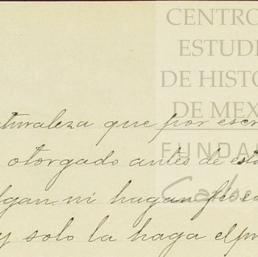 CENTRO
ESTUDI
DE HISTO
DE MEX
FUNDA
Carlos
turaleza que por escr
otorgado antes de est
lgan ni hagan fé e
y solo la haga el pr